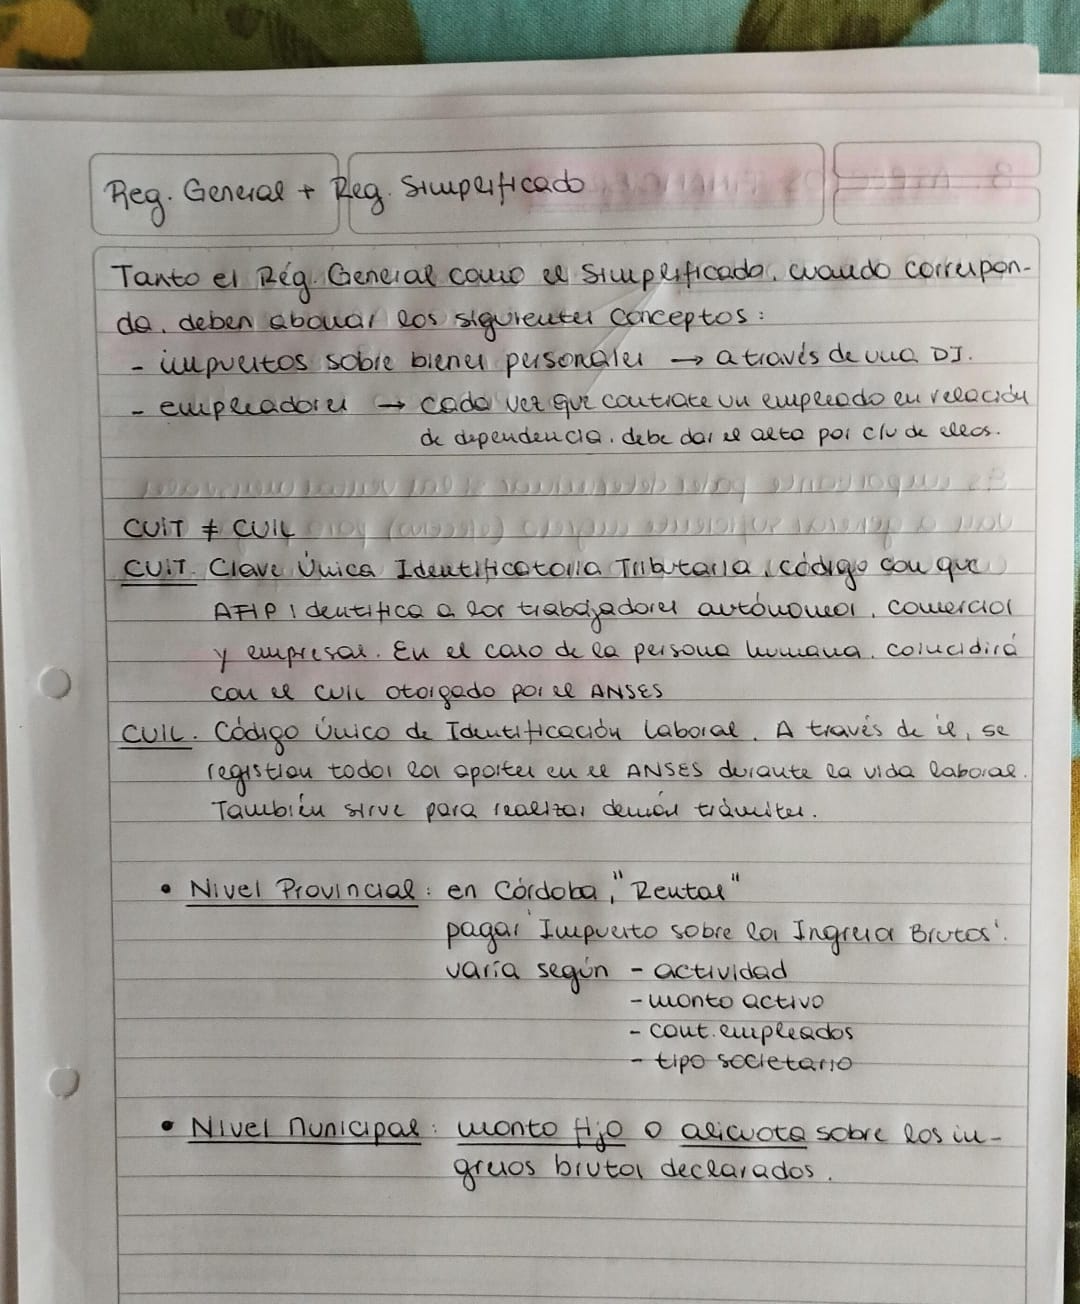 Reg. General + Reg. Simplificado
Tanto el Rég. General como el Simplificado, cuando correspon-
da, deben abonar los siguientes conceptos:
- impuestos sobre bienes personales → a través de una DJ.
- empleadores → cada vez que contrate un empleado en relación
de dependencia, debe dar el alta por c/u de ellos.
CUIT ≠ CUIL
CUIT. Clave Única Identificatoria Tributaria, código con que
AFIP identifica a los trabajadores autónomos, comercios
y empresas. En el caso de la persona humana, coincidirá
con el CUIL otorgado por el ANSES
CUIL. Código Único de Identificación Laboral. A través de él, se
registran todos los aportes en el ANSES durante la vida laboral.
También sirve para realizar demás trámites.
• Nivel Provincial: en Córdoba, "Rentas"
pagar 'Impuesto sobre los Ingresos Brutos'.
varía según - actividad
- monto activo
- cant. empleados
- tipo societario
• Nivel Municipal: monto fijo o alicuota sobre los in-
gresos brutos declarados.